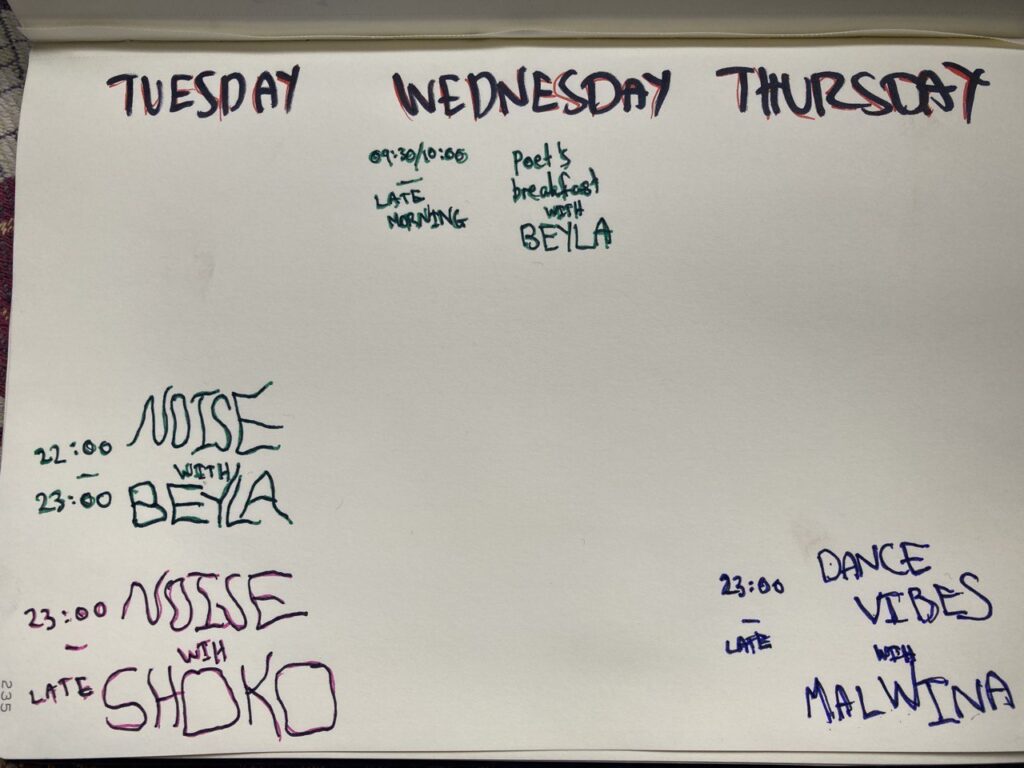 TUESDAY WEDNESDAY THURSDAY
09:30/10:00
–
LATE
MORNING
poet's
breakfast
WITH
BEYLA
22:00
–
23:00
NOISE
WITH
BEYLA
23:00
–
LATE
NOISE
WIH
SHOKO
23:00
–
LATE
DANCE
VIBES
WITH
MALWINA
235